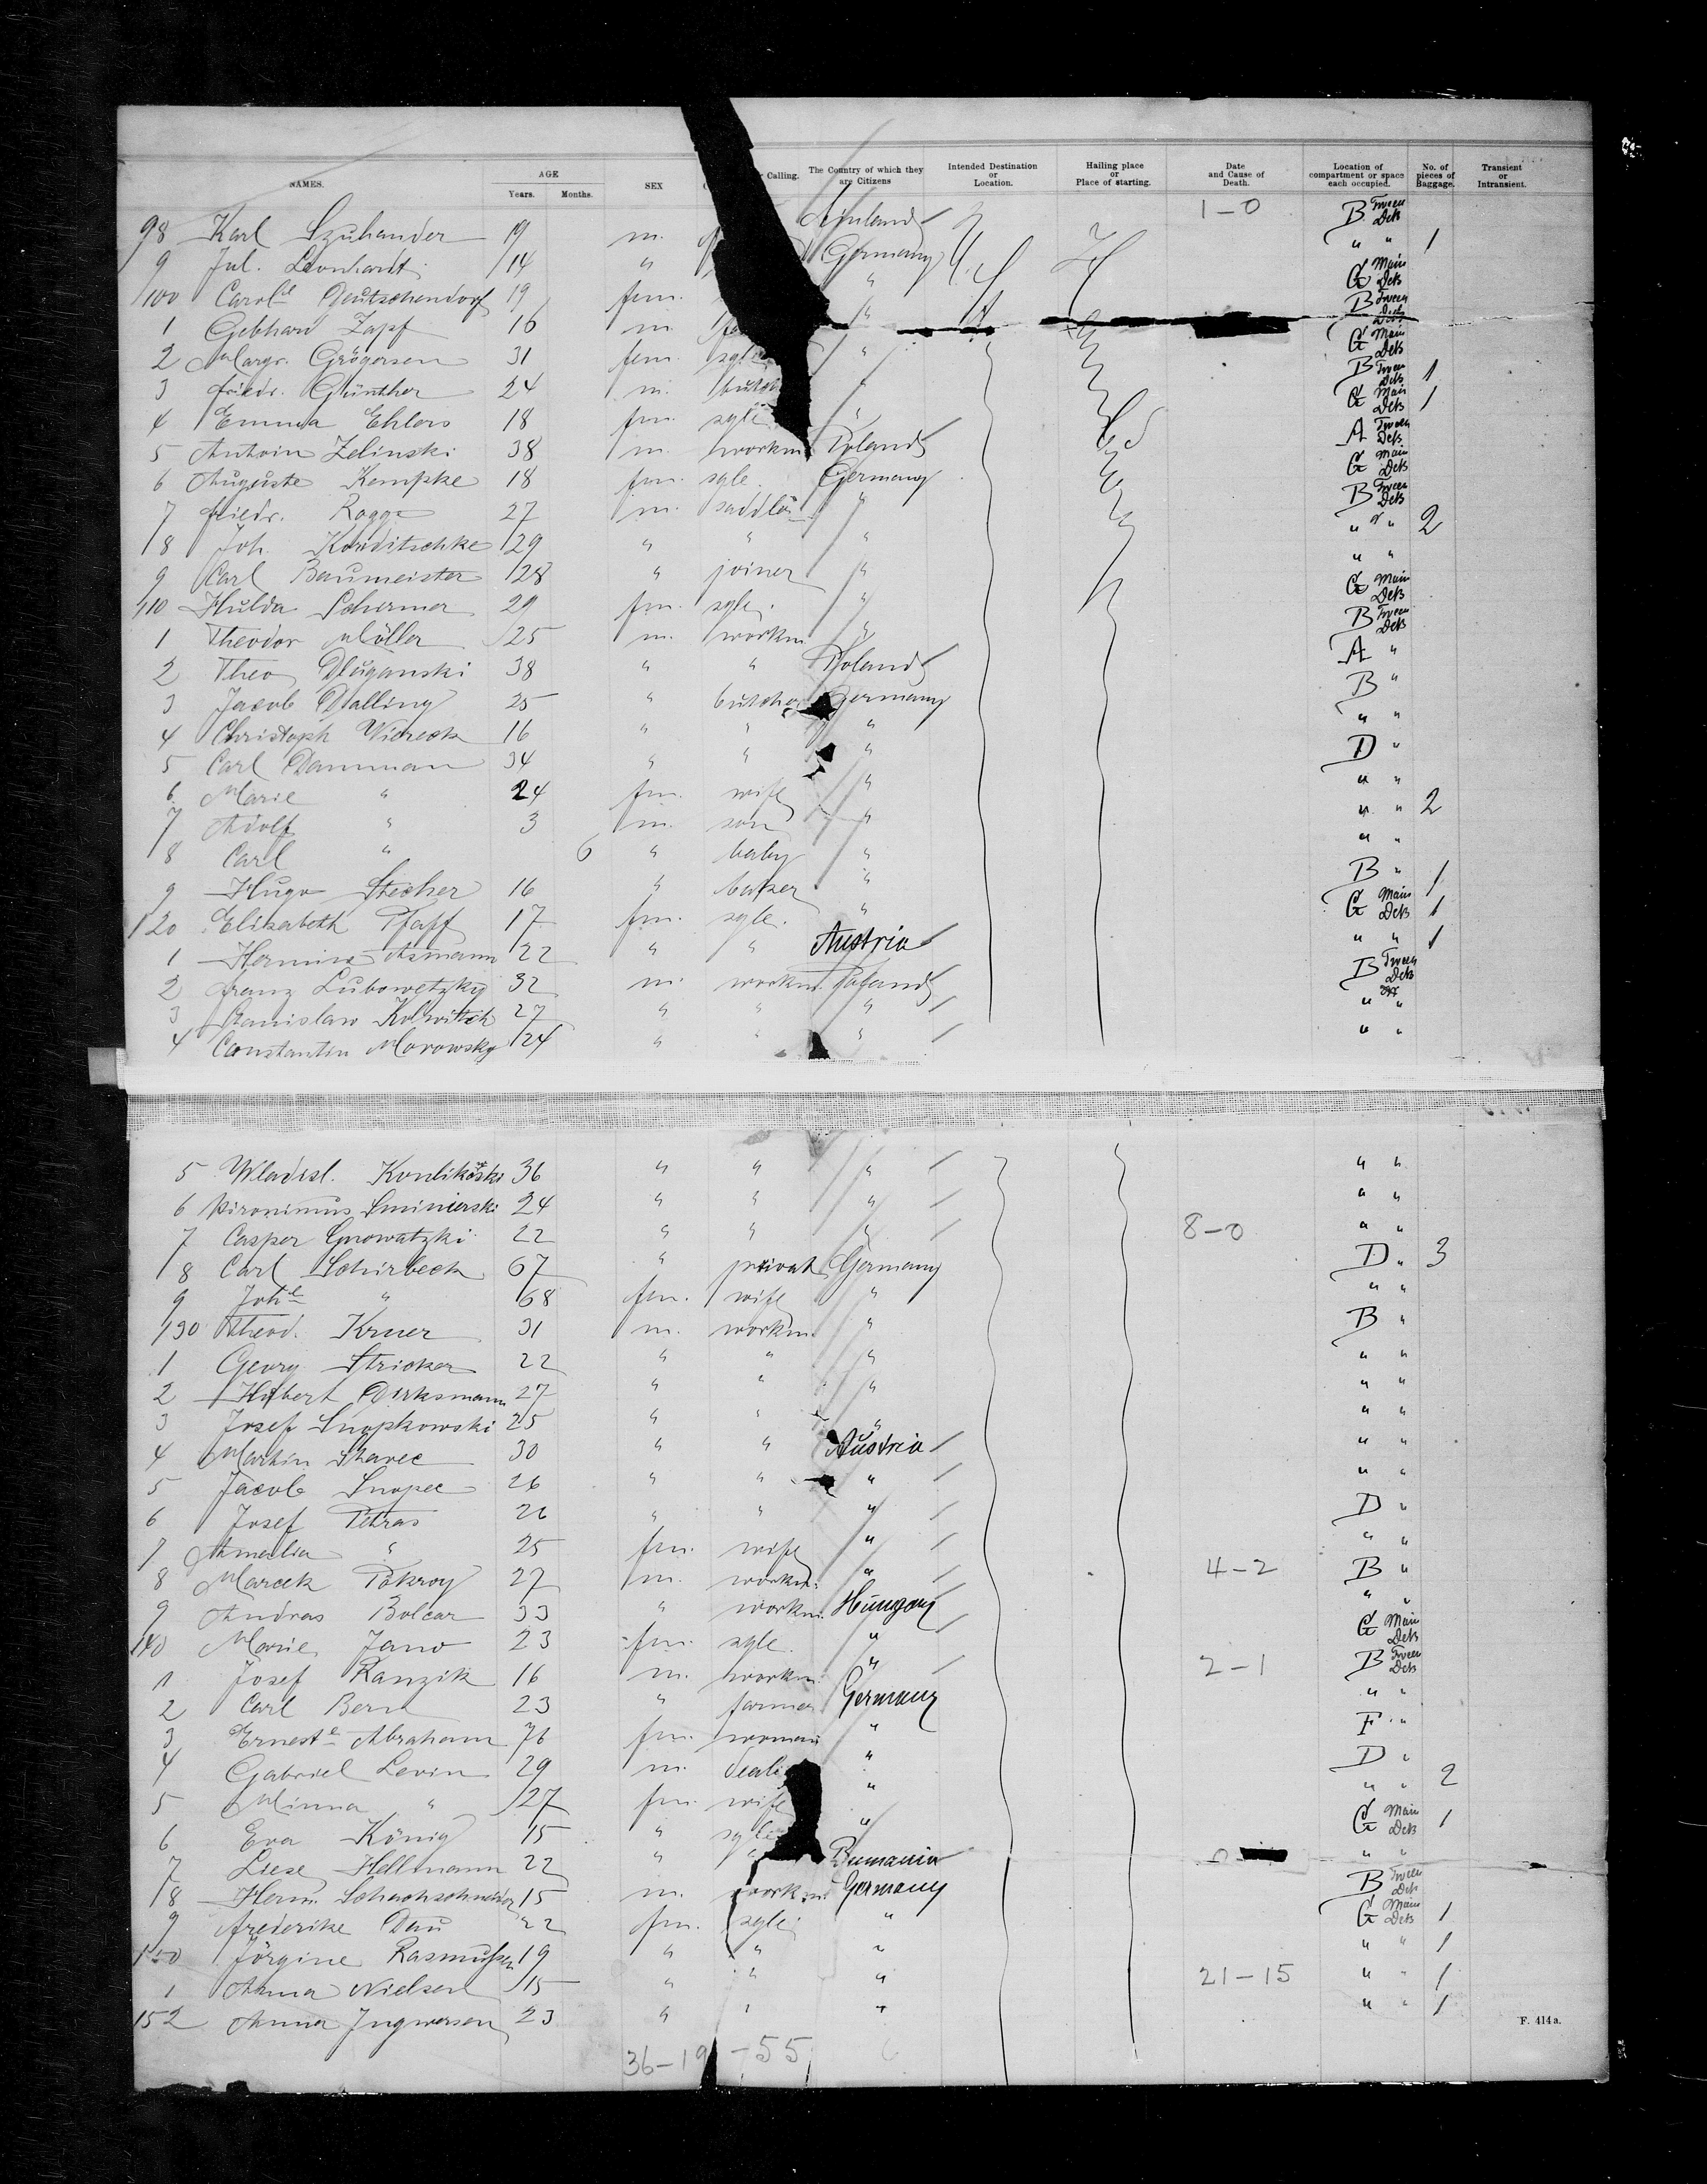 NAMES. AGE Years. Months. SEX Calling. The Country of which they are Citizens Intended Destination or Location. Hailing place or Place of starting. Date and Cause of Death. Location of compartment or space each occupied. No. of pieces of Baggage. Transient or Intransient.
98 Karl 19 m. 1-0 B Tween Deck
9 Jul. Leonhardt 14 " Germany " " 1
100 Carol Deutschendorf 19 fem. " G Main Deck
1 Gebhard Zapf 16 m. " B Tween Deck
2 Margr. Grögersen 31 fem. sgle " G Main Deck
3 Friedr. Günther 24 m. " B Tween Deck 1
4 Emma Ehlers 18 fm. sgle " G Main Deck 1
5 Antoin Zelinski 38 m. workm Poland A Tween Deck
6 Auguste Kempke 18 fm. sgle. Germany G Main Deck
7 Friedr. Rogge 27 m. saddler " B Tween Deck
8 Joh. Korditschke 29 " " " " " 2
9 Carl Baumeister 28 " joiner " " "
110 Hulda Schermer 29 fm. sgle. " G Main Deck
1 Theodor Möller 25 m. workm " B Tween Deck
2 Theo Dluganski 38 " " Poland A "
3 Jacob Dalling 25 " butcher Germany B "
4 Christoph Viereck 16 " " " " "
5 Carl Damman 34 " " " D "
6 Marie " 24 fm. wife " " "
7 Adolf " 3 m. son " " " 2
8 Carl " 6 " baby " " "
9 Hugo Stecher 16 " baker " B " 1
120 Elisabeth Pfaff 17 fm. sgle. " G Main Deck 1
1 Hermine Asmann 22 " " Austria " " 1
2 Franz Lubowetzky 32 m. workm. Poland B Tween Deck
3 Stanislaw Kolwitsch 27 " " " " "
4 Constantin Morowsky 24 " " " " "
5 Wladisl. 36 " " " " "
6 24 " " " " "
7 Casper Gnowatzki 22 " " " 8-0 " "
8 Carl Schirbeck 67 " privat Germany D " 3
9 Joh " 68 fm. wife " " "
130 Theod. Kruer 31 m. workm. " B "
1 Georg Stricker 22 " " " " "
2 Dirksmann 27 " " " " "
3 Josef Snopkowski 25 " " " " "
4 Martin 30 " " Austria " "
5 Jacob Snopec 26 " " " " "
6 Josef Petras 26 " " " D "
7 Amalia " 25 fm. wife " " "
8 Marcek Pokroy 27 m. workm. " 4-2 B "
9 Andras Bolcar 33 " workm. Hungary " "
140 Marie Jano 23 fm. sgle. " G Main Deck
1 Josef Ranzik 16 m. workm. " 2-1 B Tween Deck
2 Carl Bern 23 " farmer Germany " "
3 Ernest Abraham 76 fm. woman " F "
4 Gabriel Levin 29 m. " D "
5 Minna " 27 fm. wife " " " 2
6 Eva König 15 " sgle " G Main Deck 1
7 Liese Hellmann 22 " Rumania " "
8 Herm. Schachschneider 15 m. workm Germany B Tween Deck
9 Frederike Dau 22 fm. sgle. " G Main Deck 1
150 Jörgine Rasmussen 19 " " " " " 1
1 Anna Nielsen 15 " " " 21-15 " " 1
152 Anna Ingwersen 23 " " " " " 1
F. 414 a.
36-19 -55